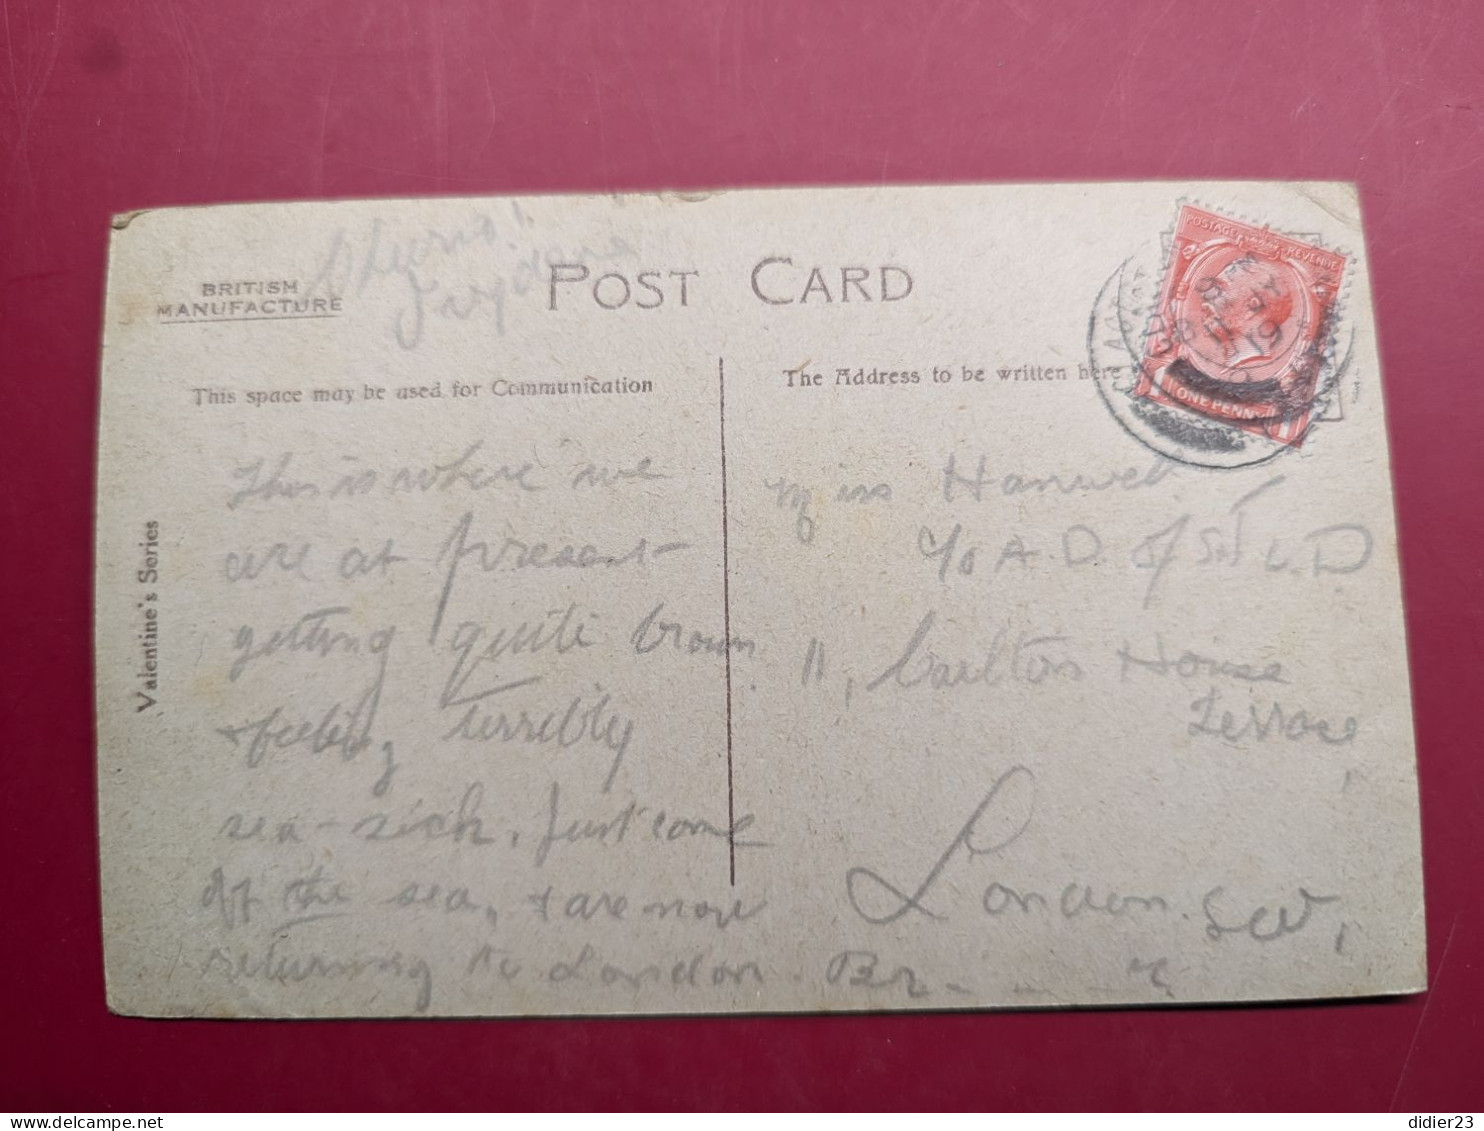 Cheerio!
BRITISH
MANUFACTURE
POST CARD
This space may be used for Communication
The Address to be written here
POSTAGE REVENUE
ONE PENNY
Valentine's Series
This is where we
are at present
getting quite brown
+ feeling terribly
sea-sick. Just come
off the sea, + are now
returning to London. Br
Miss Hanwel
c/o A. D. of S. T L. D
11, Carlton House
Terrace,
London. S.W.1
didier23